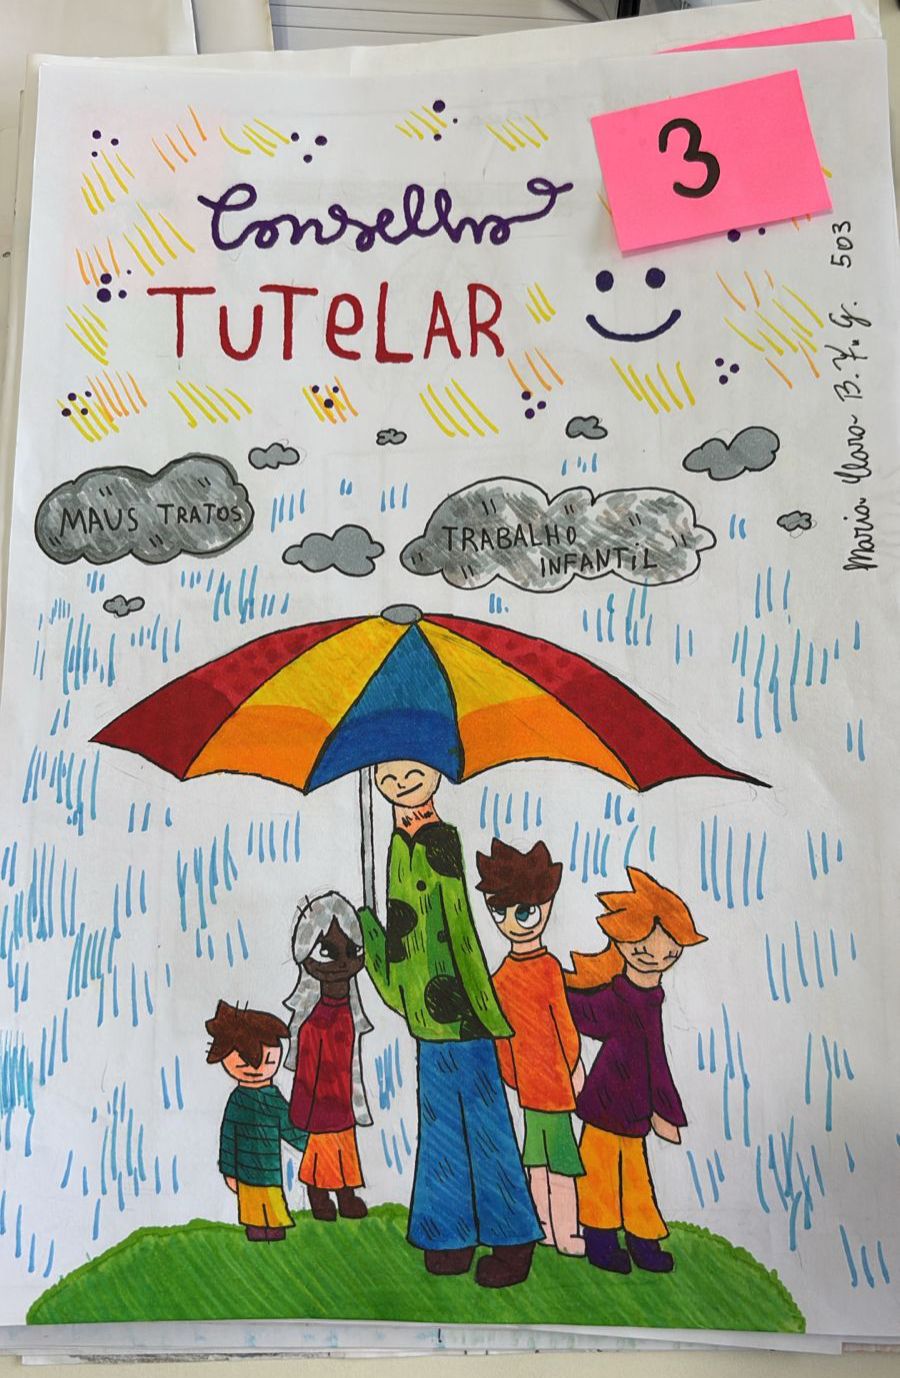 Conselho
TUTeLAR
3
MAUS TRATOS
TRABALHO
INFANTiL
Maria Clara B. F. G. 503